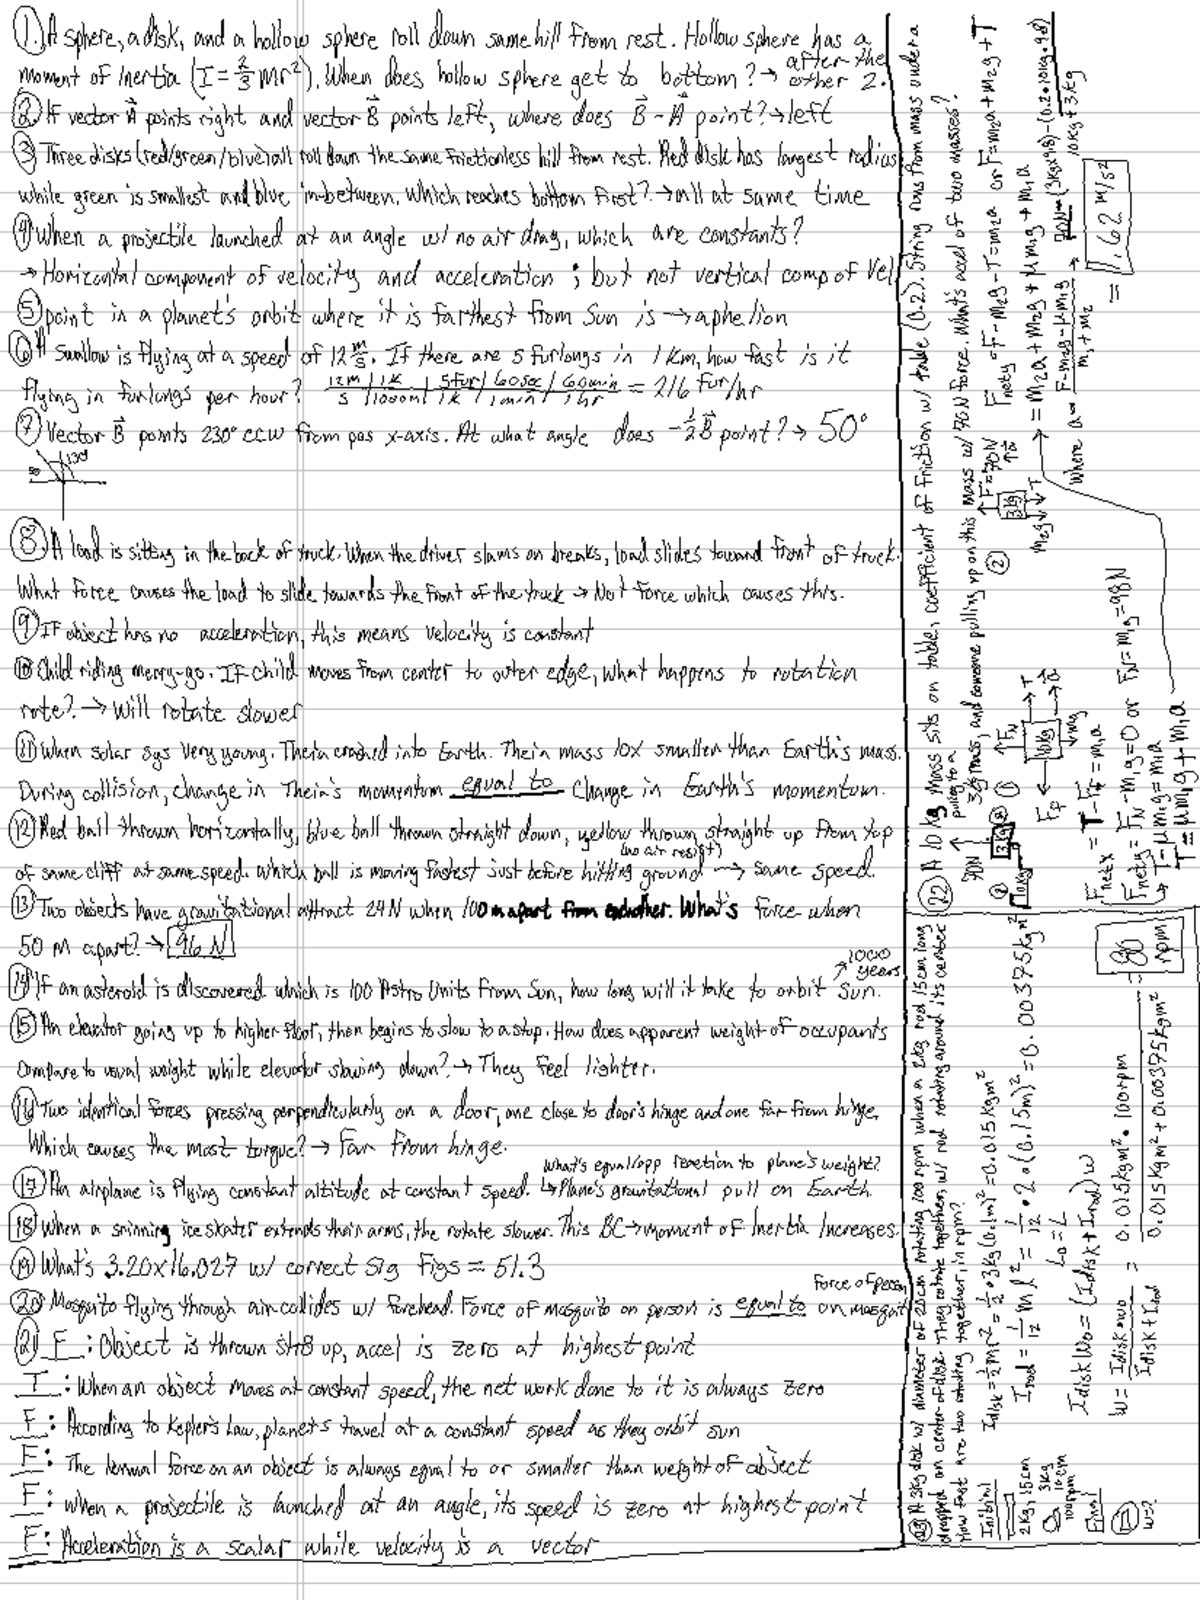 ① A sphere, a disk, and a hollow sphere roll down same hill from rest. Hollow sphere has a
moment of inertia (I = 2/3 mr²). When does hollow sphere get to bottom? → after the other 2.
② If vector A⃗ points right and vector B⃗ points left, where does B⃗ - A⃗ point? → left
③ Three disks (red/green/blue) all roll down the same frictionless hill from rest. Red disk has largest radius
while green is smallest and blue in-between. Which reaches bottom first? → all at same time
④ When a projectile launched at an angle w/ no air drag, which are constants?
→ Horizontal component of velocity and acceleration ; but not vertical comp of Vel
⑤ point in a planet's orbit where it is farthest from Sun is → aphelion
⑥ A swallow is flying at a speed of 12 m/s. If there are 5 furlongs in 1 Km, how fast is it
flying in furlongs per hour? 12m/s | 1K/1000m | 5fur/1K | 60sec/1min | 60min/1hr = 216 fur/hr
⑦ Vector B⃗ points 230° ccw from pos x-axis. At what angle does -1/2 B⃗ point? → 50°
⑧ A load is sitting in the back of truck. When the driver slams on breaks, load slides toward front of truck.
What force causes the load to slide towards the front of the truck → Not force which causes this.
⑨ If object has no acceleration, this means velocity is constant
⑩ Child riding merry-go. If child moves from center to outer edge, what happens to rotation
rate? → Will rotate slower
⑪ When solar sys very young. Theia crashed into Earth. Theia mass 10x smaller than Earth's mass.
During collision, change in Theia's momentum equal to change in Earth's momentum.
⑫ Red ball thrown horizontally, blue ball thrown straight down, yellow thrown straight up from top
of same cliff at same speed. Which ball is moving fastest just before hitting ground (no air resist) → same speed.
⑬ Two objects have gravitational attract 24N when 100m apart from eachother. What's force when
50 m apart? → 96 N
⑭ If an asteroid is discovered which is 100 Astro Units from Sun, how long will it take to orbit Sun. → 1000 years
⑮ An elevator going up to higher floor, then begins to slow to a stop. How does apparent weight of occupants
compare to usual weight while elevator slowing down? → They feel lighter.
⑯ Two identical forces pressing perpendicularly on a door, one close to door's hinge and one far from hinge.
Which causes the most torque? → far from hinge.
⑰ An airplane is flying constant altitude at constant speed. What's equal/opp reaction to plane's weight? ↳ Plane's gravitational pull on Earth
⑱ When a spinning ice skater extends their arms, the rotate slower. This BC → moment of Inertia Increases.
⑲ What's 3.20x16.027 w/ correct sig figs = 51.3
⑳ Mosquito flying through air collides w/ forehead. Force of mosquito on person is equal to Force of person on mosquito
㉑ F : Object is thrown str8 up, accel is zero at highest point
T : When an object moves at constant speed, the net work done to it is always zero
F : According to Kepler's Law, planets travel at a constant speed as they orbit sun
F : The normal force on an object is always equal to or smaller than weight of object
F : When a projectile is launched at an angle, its speed is zero at highest point
F : Acceleration is a scalar while velocity is a vector
㉒ A 10 kg mass sits on table, coefficient of friction w/ table (0.2). String runs from mass under a
pulley to a 3kg mass, and someone pulling up on this mass w/ 70N force. What's accel of two masses?
70N
3kg ②
10kg
① F_N
F_f ← 10kg → T
→ a⃗
m₁g
F_netx = T - F_f = m₁a
F_nety = F_N - m₁g = 0 or F_N = m₁g = 98N
↳ T - μm₁g = m₁a
T = μm₁g + m₁a
② F = 70N
3kg ↑a⃗
m₂g T
F_nety = F - m₂g - T = m₂a or F = m₂a + m₂g + T
→ = m₂a + m₂g + μm₁g + m₁a
where a = F - m₂g - μm₁g / m₁ + m₂ → 70N - (3kg x 9.8) - (0.2 • 10kg • 9.8) / 10kg + 3kg
= 1.62 m/s²
㉓ A 3kg disk w/ diameter of 20cm rotating 100 rpm when a 2kg rod 15cm long
dropped on center of disk. They rotate together, w/ rod rotating around its center
How fast are two rotating together, in rpm?
Initial
2kg, 15cm
3kg
10cm
100rpm
Final
w=?
I_disk = 1/2 mr² = 1/2 • 3kg (0.1m)² = 0.015 kgm²
I_rod = 1/12 m l² = 1/12 • 2 • (0.15m)² = 0.00375 kgm²
L₀ = L
I_disk w₀ = (I_disk + I_rod) w
w = I_disk w₀ / I_disk + I_rod = 0.015kgm² • 100rpm / 0.015kgm² + 0.00375kgm² = 80 rpm